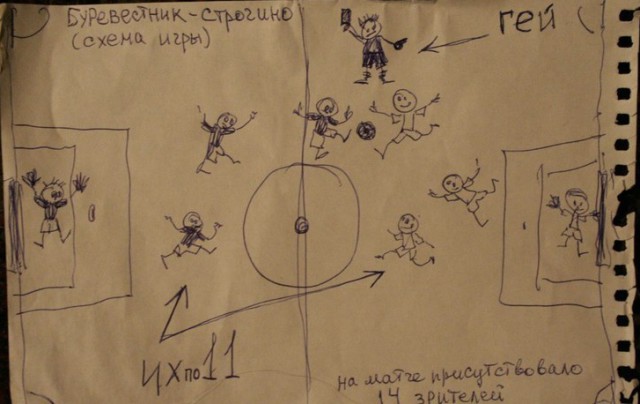 Буревестник-Строгино
(схема игры)
гей
их по 11
на матче присутствовало
14 зрителей